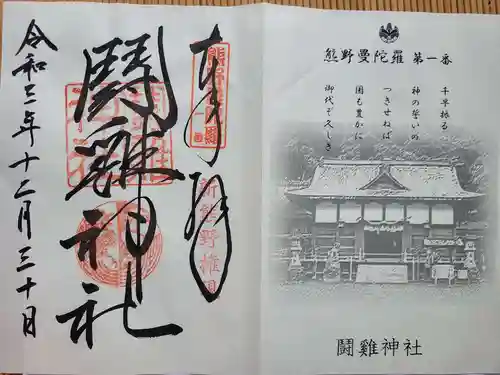 奉拝
熊野曼陀羅
新熊野権現
闘雞神社
令和三年十二月三十日
熊野曼陀羅 第一番
千早振る
神の誓いの
つきせねば
国も豊かに
御代ぞ久しき
闘雞神社